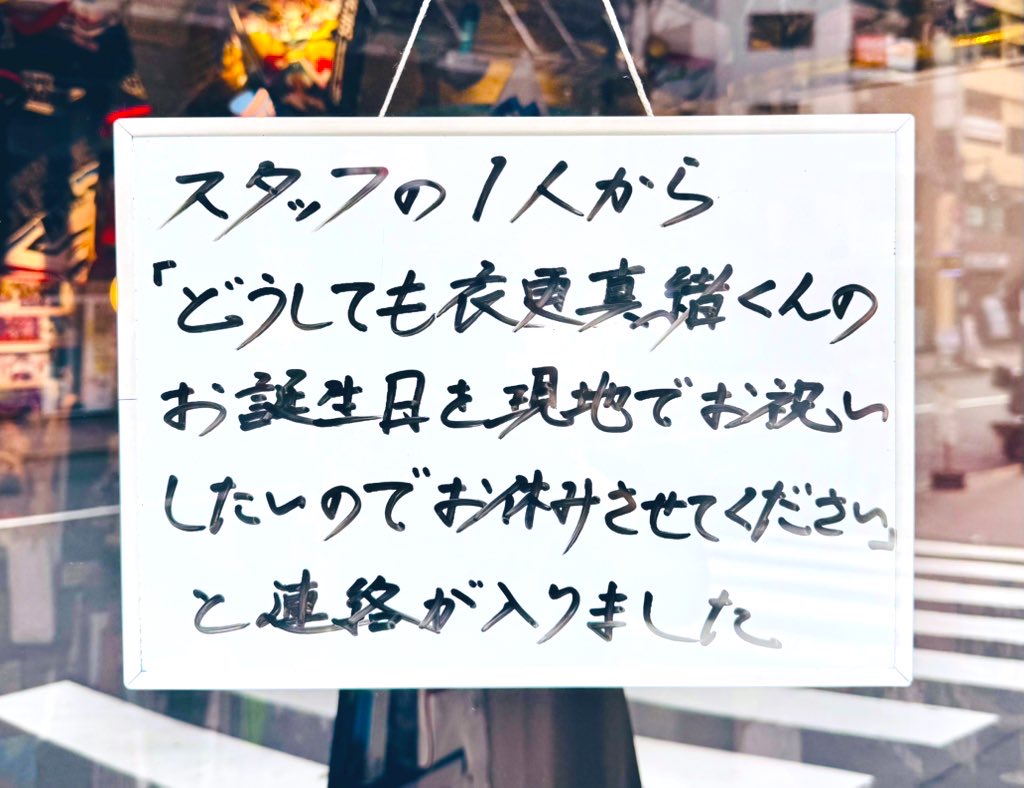 スタッフの1人から
「どうしても衣更真緒くんの
お誕生日を現地でお祝い
したいのでお休みさせてください」
と連絡が入りました